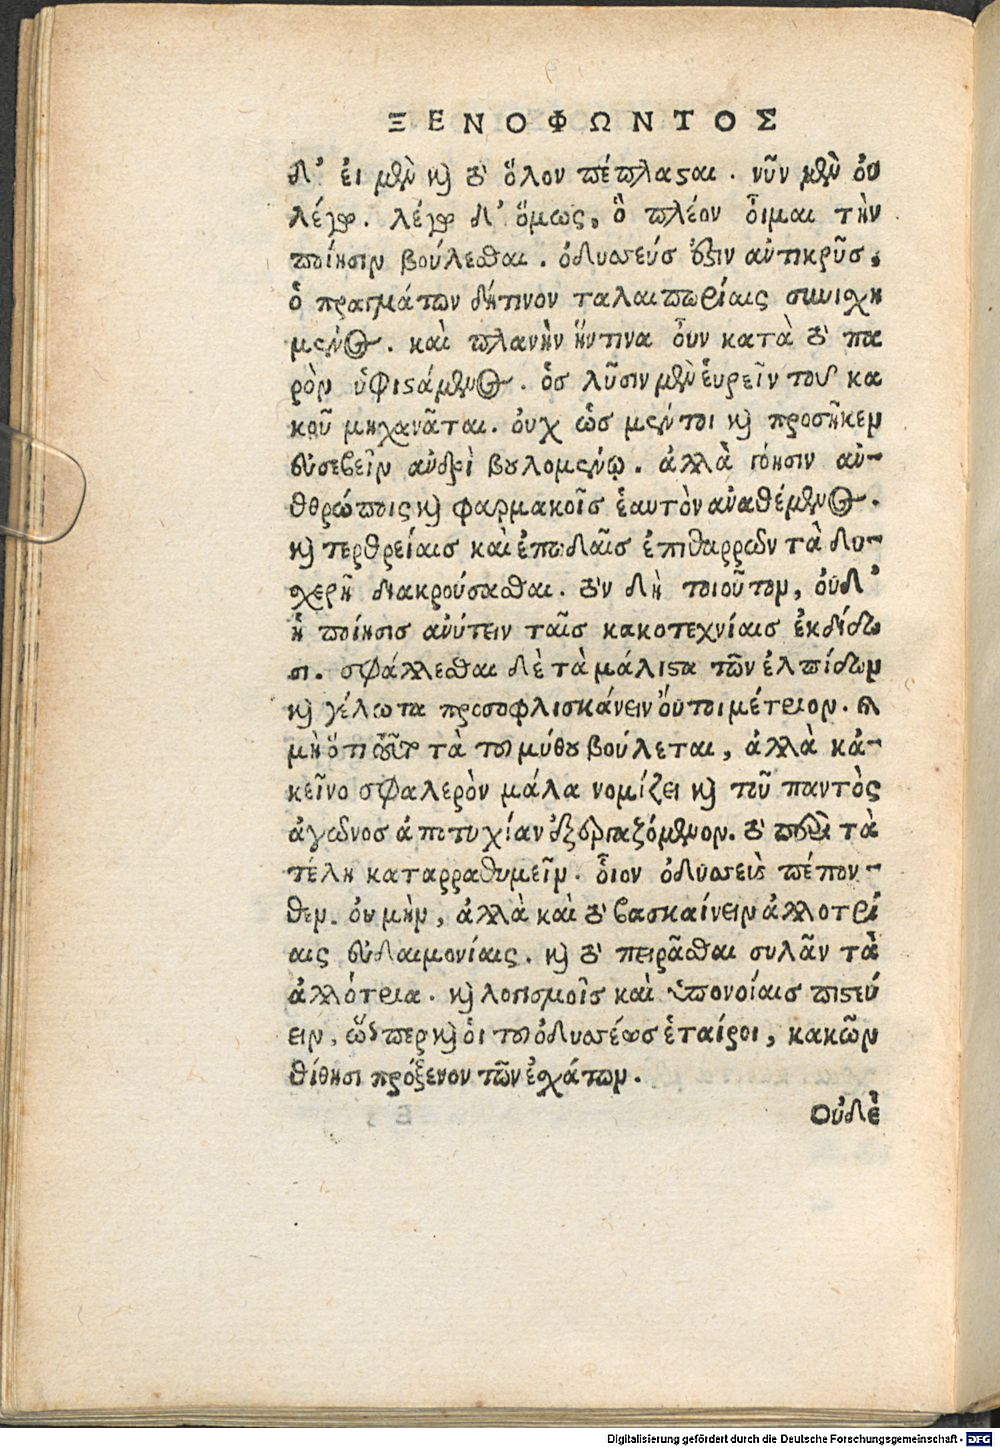 ΞΕΝΟΦΩΝΤΟΣ
δ' ἐι μὲν κὴ τὸ ὅλον πέπλασαι. νῦν μὲν ὀυ
λέγω. λέγω δ' ὅμως, ὃ πλέον ὀῖμαι τὴν
ποίησιν βούλεσθαι. ὀδυσσεύς ὅξιν αὐτικρῦς,
ὁ πραγμάτων δήτινον ταλαιπωρίαις συνισχη
μένος. καὶ πλανὴν ἥντινα ὀυν κατὰ τὸ πα
ρὸν ὑφισάμενος. ὁς λῦσιν μὲν ἑυρεῖν τοῦ κα
κοῦ μηχανᾶται. ὀυχ ὡς μέντοι κὴ προσῆκεν
ἐυσεβεῖν ἀνδρὶ βουλομένῳ. ἀλλὰ γόησιν ἀν-
θρώποις κὴ φαρμακοῖς ἑαυτὸν ἀναθέμενος.
κὴ τερθρείαις καὶ ἐπωδαῖς ἐπιθαρρῶν τὰ δυ-
χερῆ διακρούσασθαι. τὸν δὴ τοιοῦτον, ὀυδ'
ἡ ποίησις ἀνύτειν ταῖς κακοτεχνίαις ἐκδίδω
σι. σφάλλεσθαι δὲ τὰ μάλιςα τῶν ἐλπίδων
κὴ γέλωτα προσοφλισκάνειν ὄυτοι μέτριον. κὴ
μὴ ὅτι τοῦτο τὰ τοῦ μύθου βούλεται, ἀλλὰ κἀ-
κεῖνο σφαλερὸν μάλα νομίζει κὴ τοῦ παντὸς
ἀγῶνος ἀποτυχίαν ἐξεργαζόμενον. τὸ περὶ τὰ
τέλη καταρραθυμεῖν. ὀῖον ὀδυσσεὺς πέπον-
θεν. ὀυ μὴν, ἀλλὰ καὶ τὸ βασκαίνειν ἀλλοτρί
αις ἐυδαιμονίαις. κὴ τὸ πειρᾶσθαι συλᾶν τὰ
ἀλλότρια. κὴ λογισμοῖς καὶ ὑπονοίαις πιςεύ
ειν, ὥσπερ κὴ ὁι τοῦ ὀδυσσέως ἑταῖροι, κακῶν
τίθησι πρόξενον τῶν ἐχάτων.
Οὐδὲ
Digitalisierung gefördert durch die Deutsche Forschungsgemeinschaft - DFG